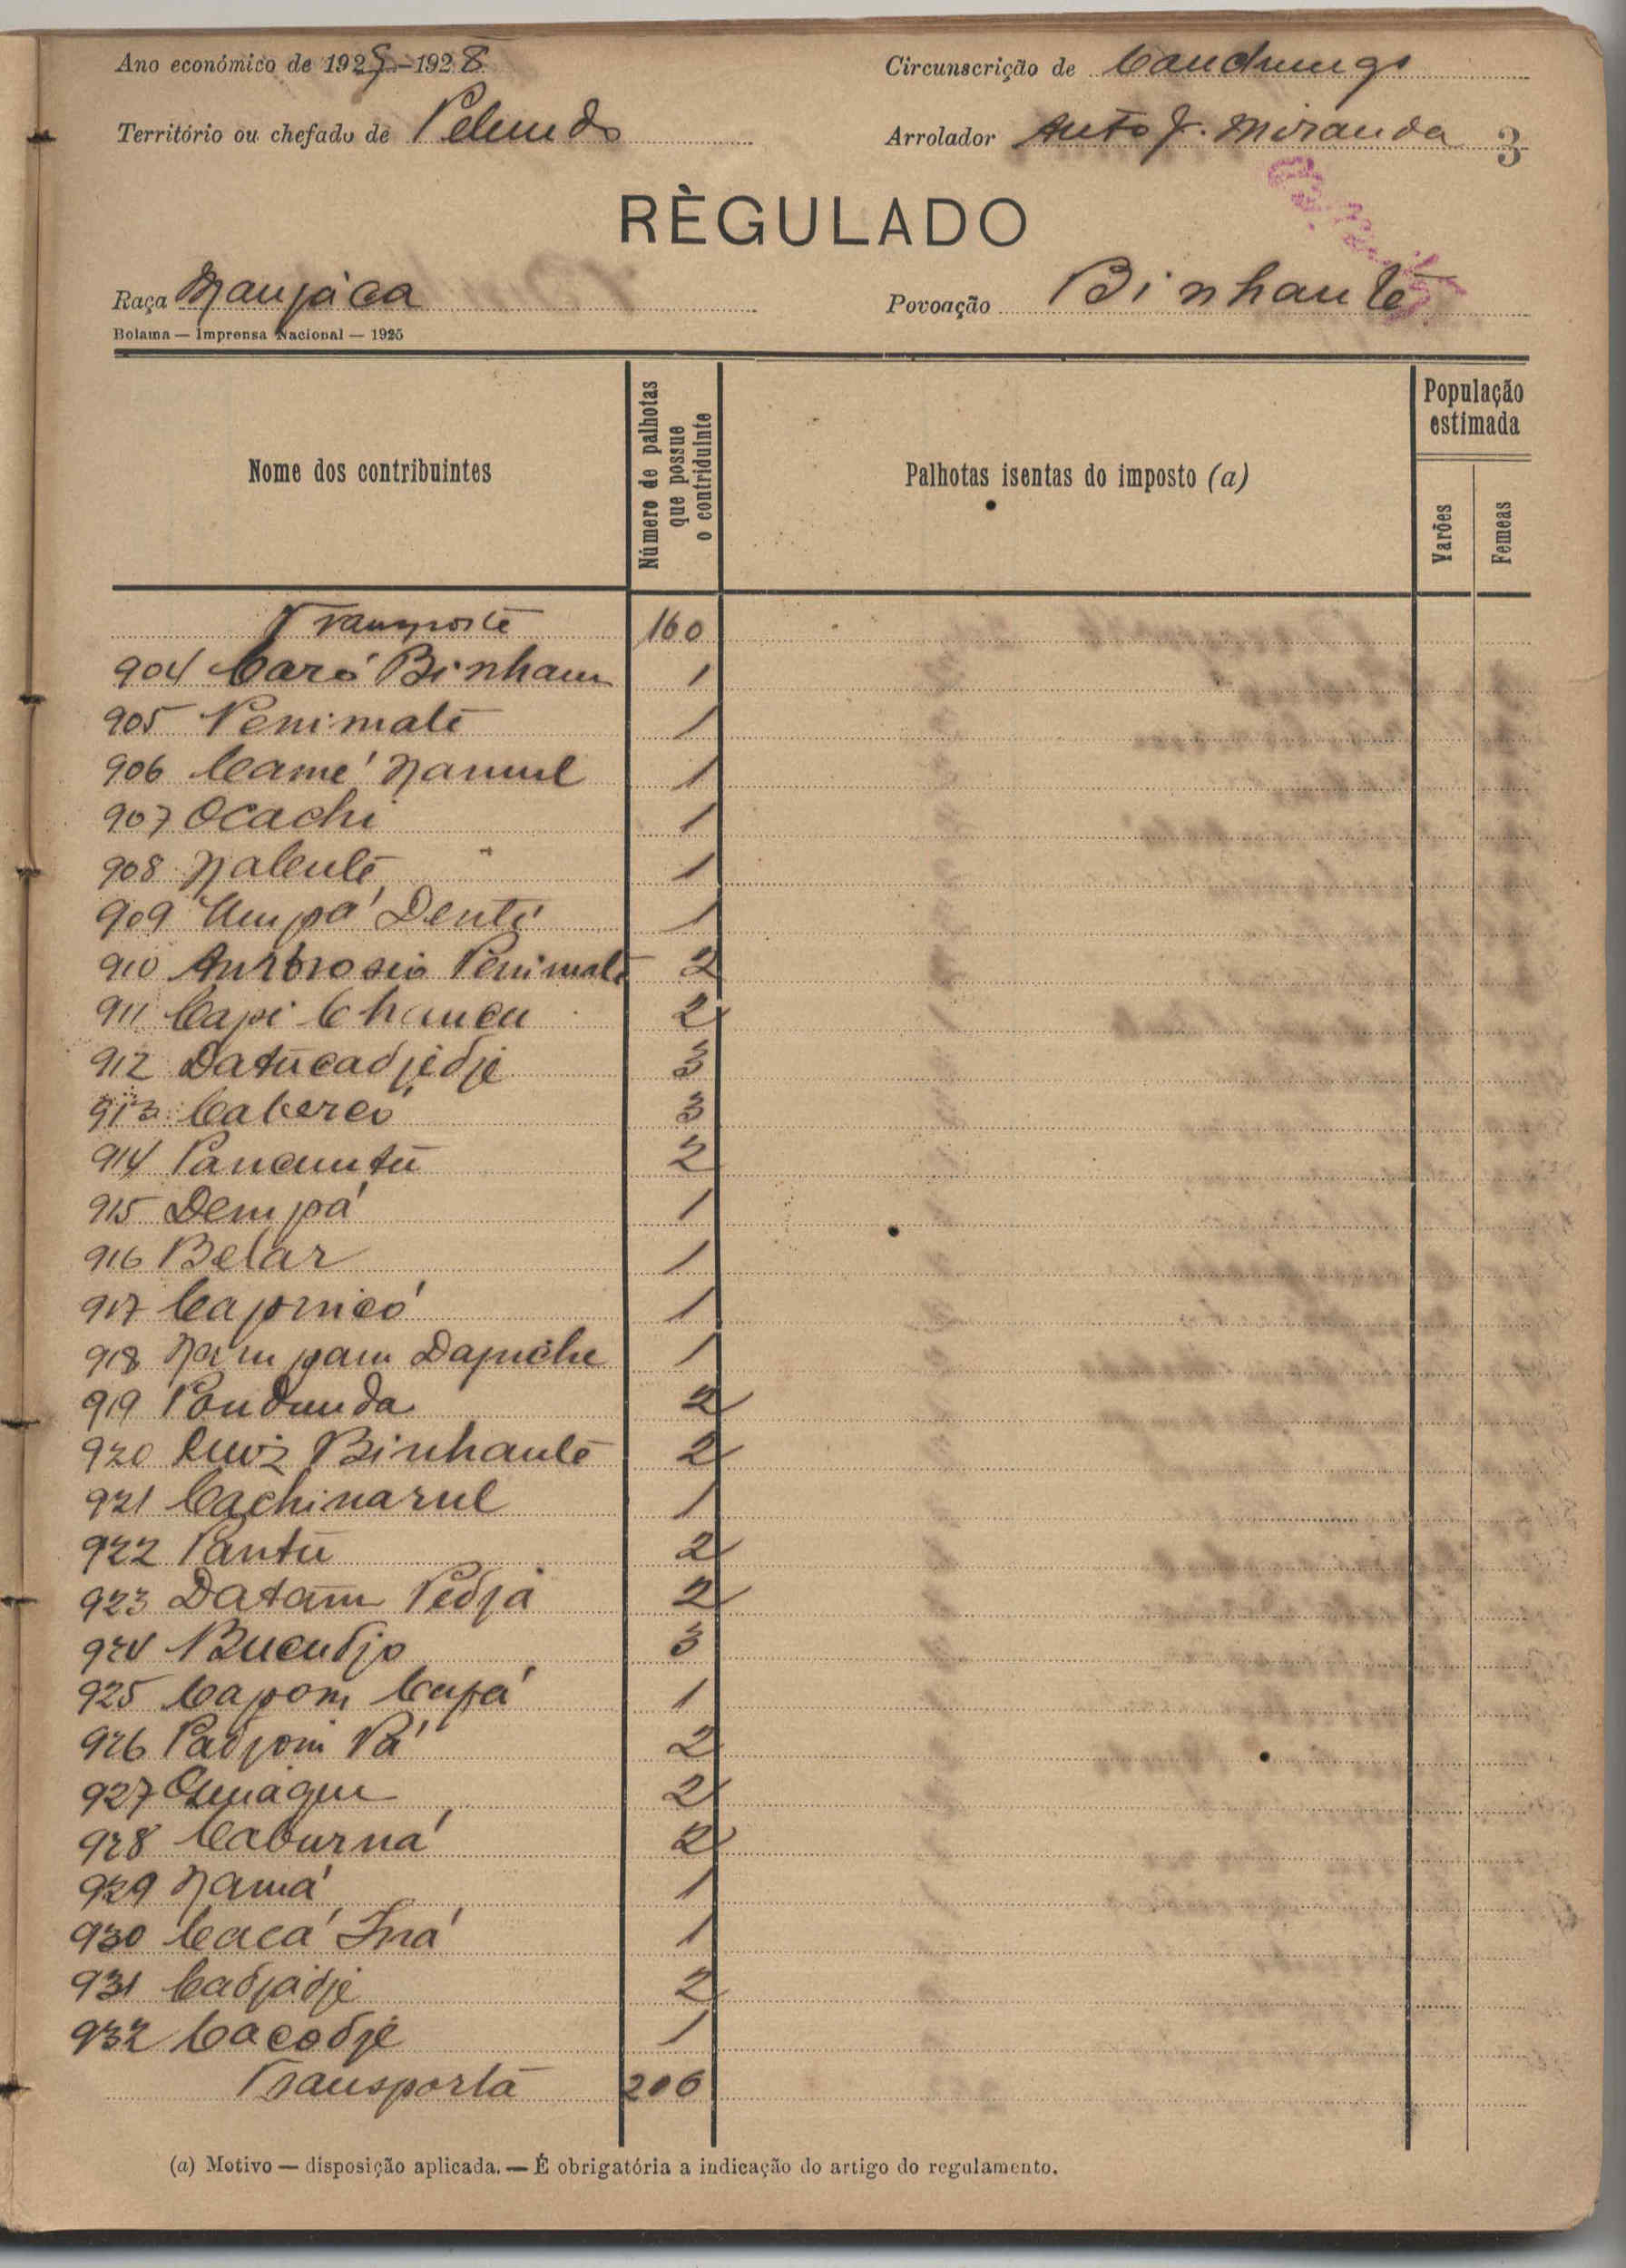 Ano económico de 1927-1928 Circunscrição de Canchungo
Território ou chefado de Pelundo Arrolador Antº J. Miranda 3
RÈGULADO
Raça Manjáca Povoação Binhante
Bolama — Imprensa Nacional — 1925
Nome dos contribuintes
Número de palhotas que possue o contriduinte
Palhotas isentas do imposto (a)
População estimada
Varões Femeas
Transporte 160
904 Caró Binham 1
905 Penimate 1
906 Camé Namul 1
907 Ocachi 1
908 Naleule 1
909 Umpá Denti 1
910 Ambrosio Penimate 2
911 Capi Chancu 2
912 Datucadjédje 3
913 Cabercó 3
914 Panauntu 2
915 Dempá 1
916 Belar 1
917 Capmicó 1
918 Nampam Dapiche 1
919 Pondunda 2
920 Luiz Binhante 2
921 Cachinarul 1
922 Pantu 2
923 Datam Pedjá 2
924 Bucudjo 3
925 Capom Cupá 1
926 Padjom Pá 2
927 2
928 Caburná 2
929 Namá 1
930 Cacá Iná 1
931 Cadjádje 2
932 Cacodje 1
Transporta 206
(a) Motivo — disposição aplicada. — É obrigatória a indicação do artigo do regulamento.